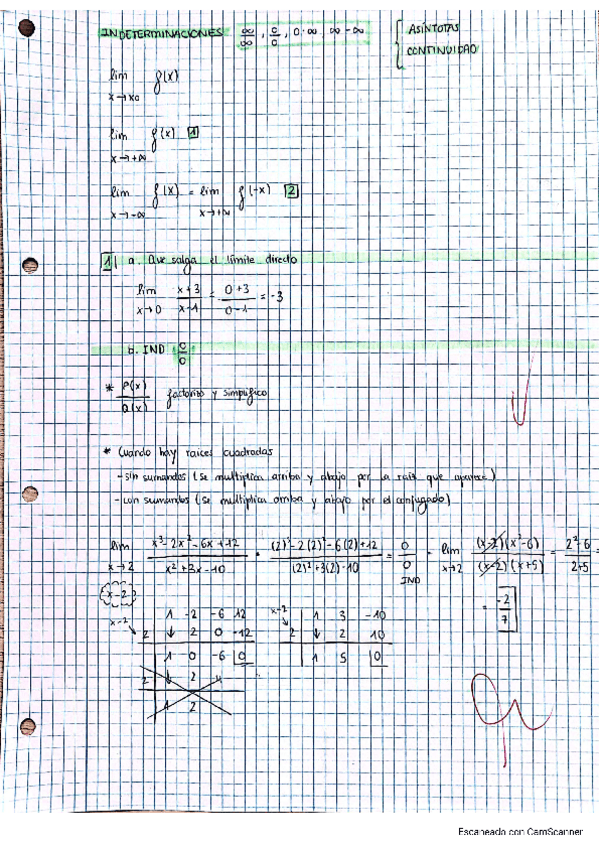 INDETERMINACIONES ∞/∞, 0/0, 0·∞, ∞-∞ { ASÍNTOTAS
CONTINUIDAD
lim f(x)
x→x0
lim f(x) 1
x→+∞
lim f(x) = lim f(-x) 2
x→-∞ x→+∞
1 a. Que salga el límite directo
lim x+3/x-1 = 0+3/0-1 = -3
x→0
b. IND 0/0
* P(x)/Q(x) factorizo y simplifico
* Cuando hay raíces cuadradas
- sin sumandos (Se multiplica arriba y abajo por la raíz que aparece)
- con sumandos (Se multiplica arriba y abajo por el conjugado)
lim x³-2x²-6x+12/x²+3x-10 = (2)³-2(2)²-6(2)+12/(2)²+3(2)-10 = 0/0 = lim (x-2)(x²-6)/(x-2)(x+5) = 2²-6/2+5 =
x→2 IND x→2
x-2 = -2/7
1 -2 -6 12 x-2 1 3 -10
x-2 2 ↓ 2 0 -12 2 ↓ 2 10
1 0 -6 0 1 5 0
2 ↓ 2 4
1 2
Escaneado con CamScanner